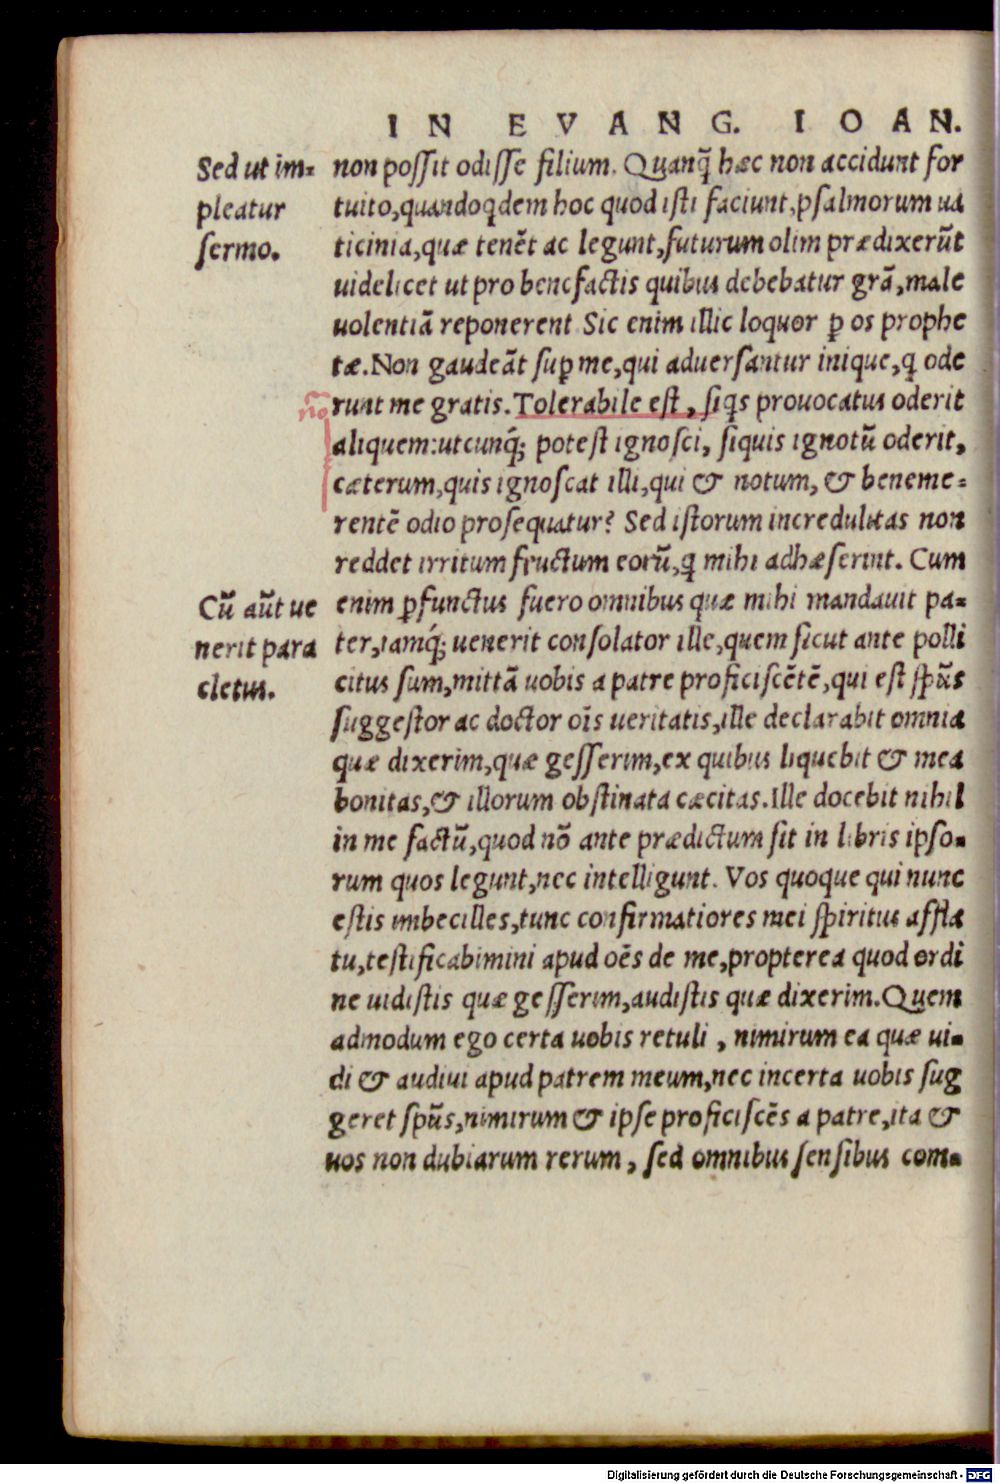 IN EVANG. IOAN.
Sed ut im-
pleatur
sermo.
non possit odisse filium. Quanq̃ hæc non accidunt for
tuito,quandoq̇dem hoc quod isti faciunt,psalmorum ua
ticinia,quæ tenẽt ac legunt,futurum olim prædixerũt
uidelicet ut pro benefactis quibus debebatur grã,male
uolentiã reponerent Sic enim illic loquor ꝑ os prophe
tæ.Non gaudeãt suꝑ me,qui aduersantur inique,q̇ ode
runt me gratis.Tolerabile est, siq̇s prouocatus oderit
no
aliquem:utcunq́; potest ignosci, siquis ignotũ oderit,
cæterum,quis ignoscat illi,qui & notum, & beneme-
rentẽ odio prosequatur? Sed istorum incredulitas non
reddet irritum fructum eorũ,q̇ mihi adhæserint. Cum
Cũ aũt ue
nerit para
cletus.
enim ꝑfunctus fuero omnibus quæ mihi mandauit pa-
ter,iamq́; uenerit consolator ille,quem sicut ante polli
citus sum,mittã uobis a patre proficiscẽtẽ,qui est spũs
suggestor ac doctor oĩs ueritatis,ille declarabit omnia
quæ dixerim,quæ gesserim,ex quibus liquebit & mea
bonitas,& illorum obstinata cæcitas.Ille docebit nihil
in me factũ,quod nõ ante prædictum sit in libris ipso-
rum quos legunt,nec intelligunt. Vos quoque qui nunc
estis imbecilles,tunc confirmatiores mei spiritus affla
tu,testificabimini apud oẽs de me,propterea quod ordi
ne uidistis quæ gesserim,audistis quæ dixerim.Quem
admodum ego certa uobis retuli , nimirum ea quæ ui-
di & audiui apud patrem meum,nec incerta uobis sug
geret spũs,nimirum & ipse proficiscẽs a patre,ita &
uos non dubiarum rerum, sed omnibus sensibus com-
Digitalisierung gefördert durch die Deutsche Forschungsgemeinschaft - DFG